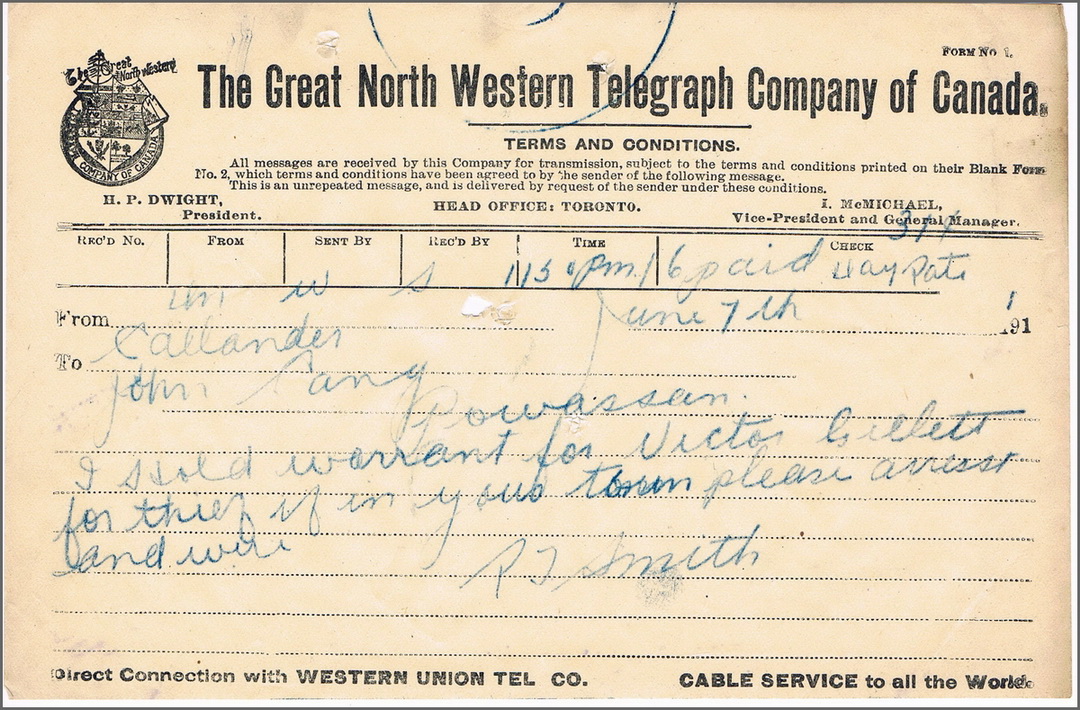 FORM NO 1.
The Great North Western
COMPANY OF CANADA
The Great North Western Telegraph Company of Canada.
TERMS AND CONDITIONS.
All messages are received by this Company for transmission, subject to the terms and conditions printed on their Blank Form
No. 2, which terms and conditions have been agreed to by the sender of the following message.
This is an unrepeated message, and is delivered by request of the sender under these conditions.
H. P. DWIGHT,
President.
HEAD OFFICE: TORONTO.
I. McMICHAEL,
Vice-President and General Manager.
REC'D NO. FROM SENT BY REC'D BY TIME CHECK
w s 115 pm 16 paid Day Rate
June 7th 1911
From Callander
To John Lang
Powassan.
I hold warrant for Victor Gillett
for thief if in your town please arrest
and wire
R J Smith
Direct Connection with WESTERN UNION TEL CO. CABLE SERVICE to all the World.